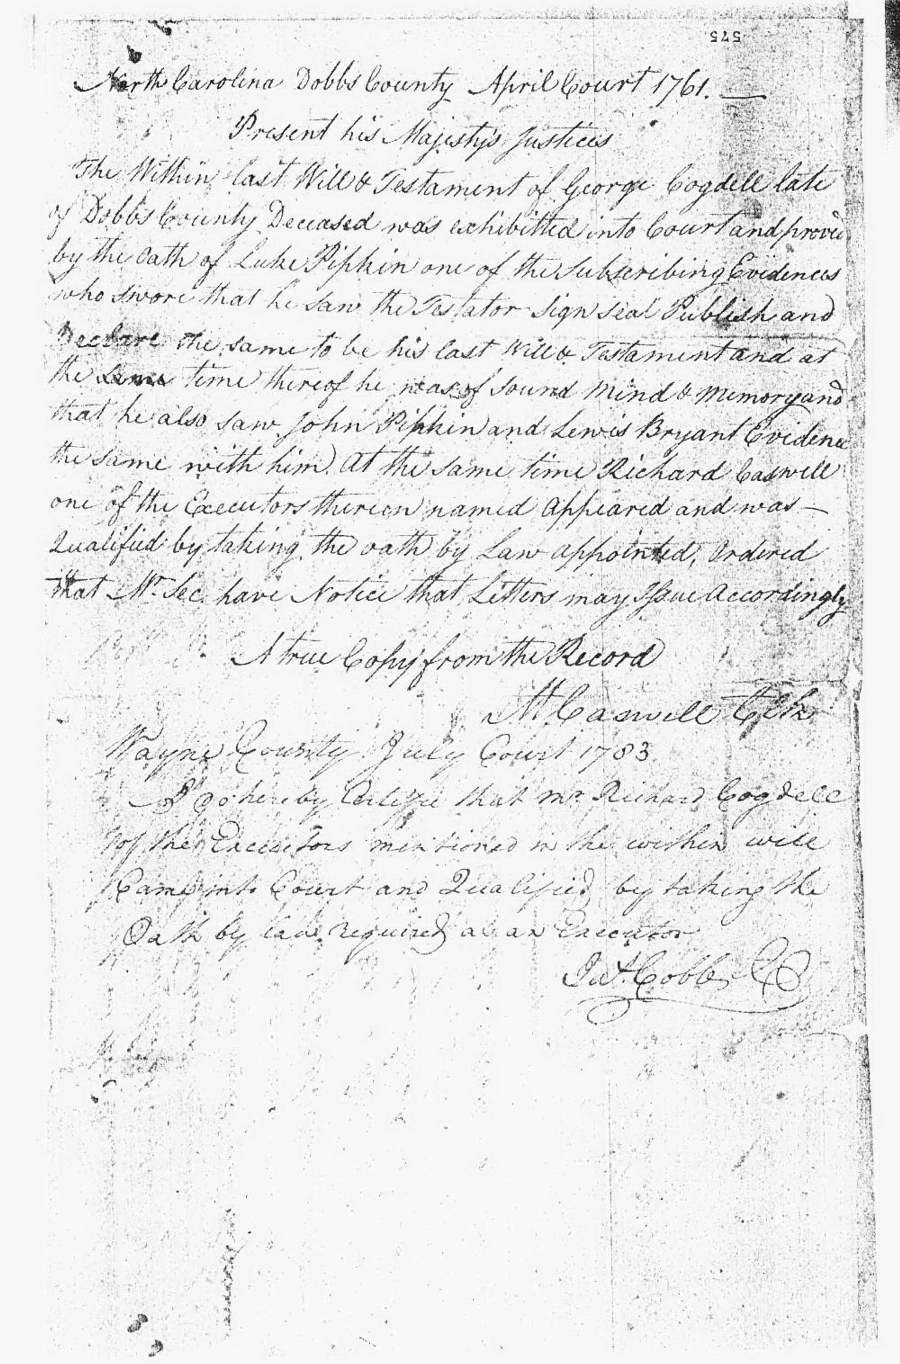 575
North Carolina Dobbs County April Court 1761.
Present his Majesty's Justices
The Within last Will & Testament of George Cogdell late
of Dobbs County Deceased was exhibitted into Court and proved
by the Oath of Luke Pipkin one of the Subscribing Evidences
who swore that he saw the Testator Sign seal Publish and
Declare the same to be his last Will & Testament and at
the same time thereof he was of Sound Mind & Memory and
that he also saw John Pipkin and Lewis Bryant Evidence
the same with him. At the same time Richard Caswell
one of the Executors thereon named Appeared and was
Qualified by taking the oath by Law appointed, Ordered
that Mr. Sec. have Notice that Letters may Issue Accordingly
A true Copy from the Record
Caswell Clk
Wayne County July Court 1783
I Do hereby Certifie that Mr. Richard Cogdell
of the Executors mentioned in the within will
Came into Court and Qualified by taking the
Oath by law required as an Executor
Cobb CC